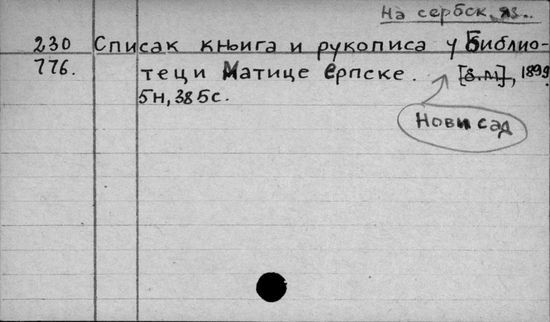 На сербск. яз.
230 Списак књига и рукописа у Библио-
776. теци Матице Српске. [б.м.], 1899
5н, 385с.
Нови сад